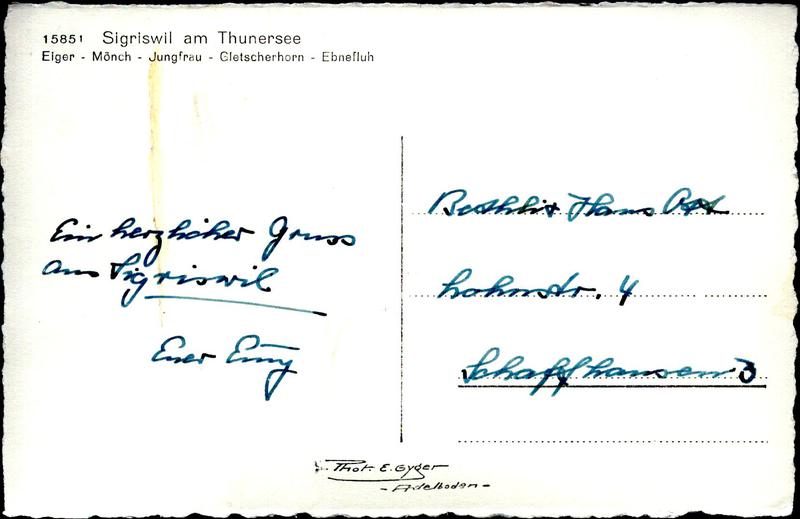 15851 Sigriswil am Thunersee
Eiger - Mönch - Jungfrau - Gletscherhorn - Ebnefluh
Ein herzlicher Gruss
aus Sigriswil
Euer Emy
Hans Ott
Lohnstr. 4
Schaffhausen 3
Phot. E. Gyger
- Adelboden -